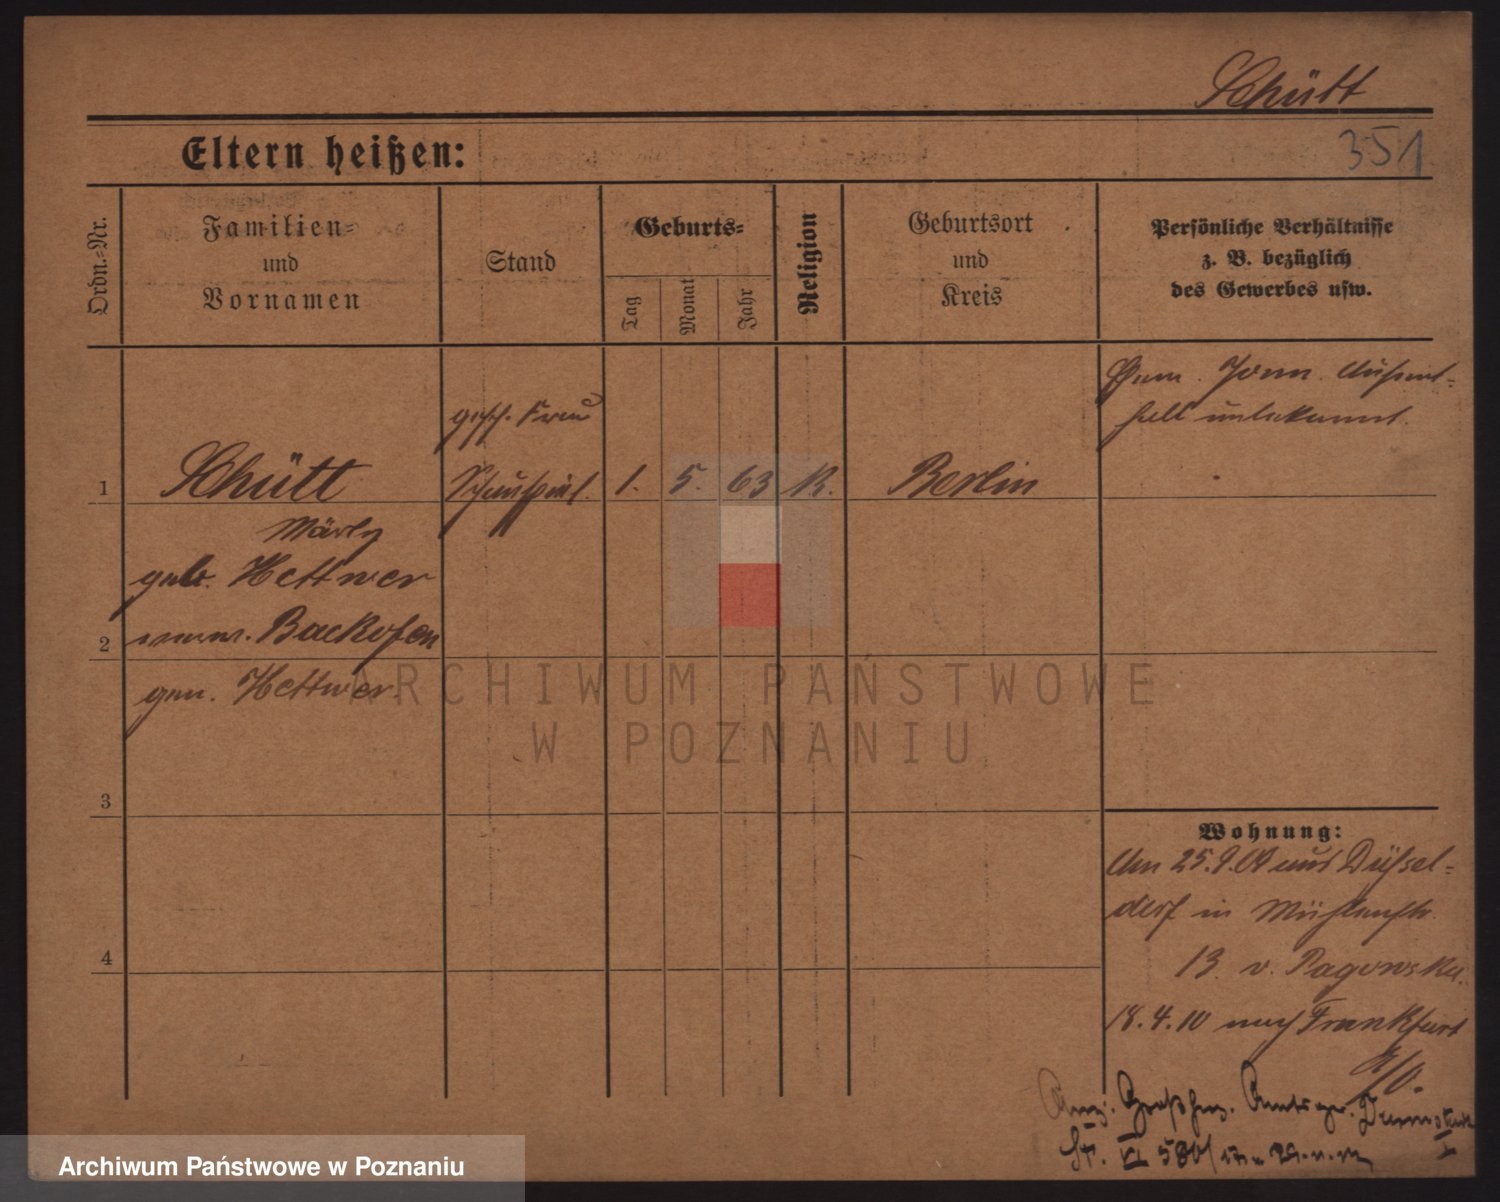 Schütt
351
Eltern heißen:
Ordn.-Nr.
Familien-
und
Vornamen
Stand
Geburts-
Tag
Monat
Jahr
Religion
Geburtsort
und
Kreis
Persönliche Verhältnisse
z. B. bezüglich
des Gewerbes usw.
Aufent-
halt unbekannt.
gesch. Frau
1 Schütt Schauspiel. 1. 5. 63 K. Berlin
geb. Hettwer
2 Backofen
gen. Hettwer.
3
4
Wohnung:
Am 25.9.09 aus Düssel-
dorf in Mühlenstr.
13 v. Pagowska.
18.4.10 nach Frankfurt
a/O.
Amtsger. Darmstadt
ARCHIWUM PAŃSTWOWE
W POZNANIU
Archiwum Państwowe w Poznaniu